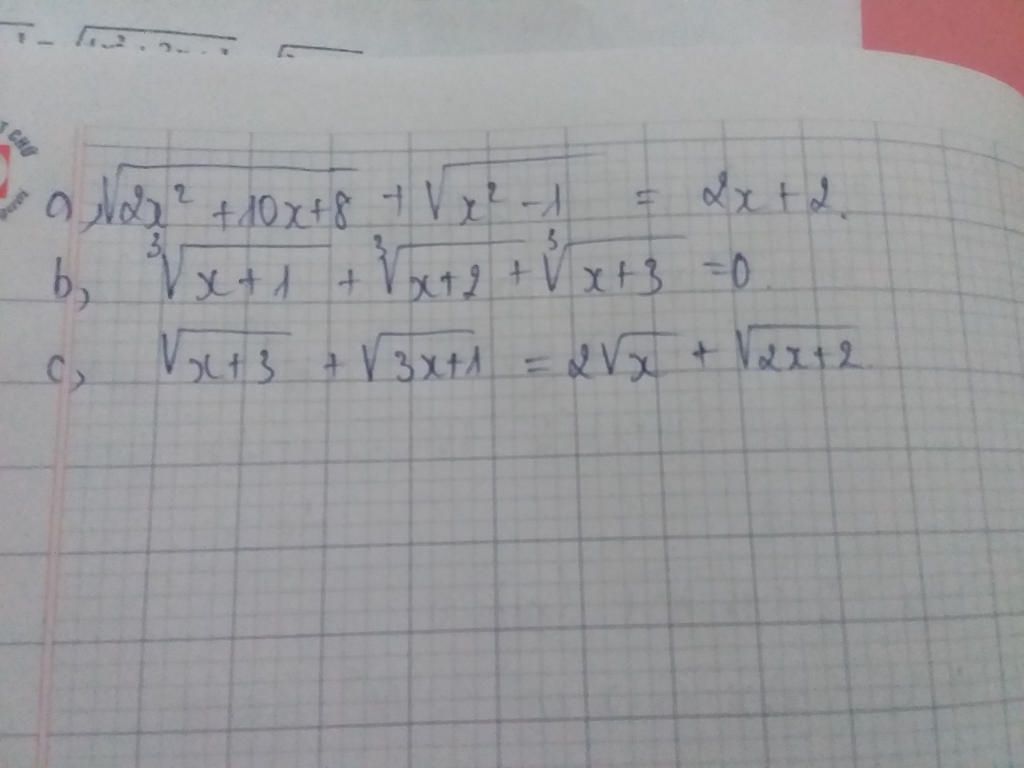 a, √(2x² + 10x + 8) + √(x² - 1) = 2x + 2.
b, ∛(x + 1) + ∛(x + 2) + ∛(x + 3) = 0.
c, √(x + 3) + √(3x + 1) = 2√x + √(2x + 2)